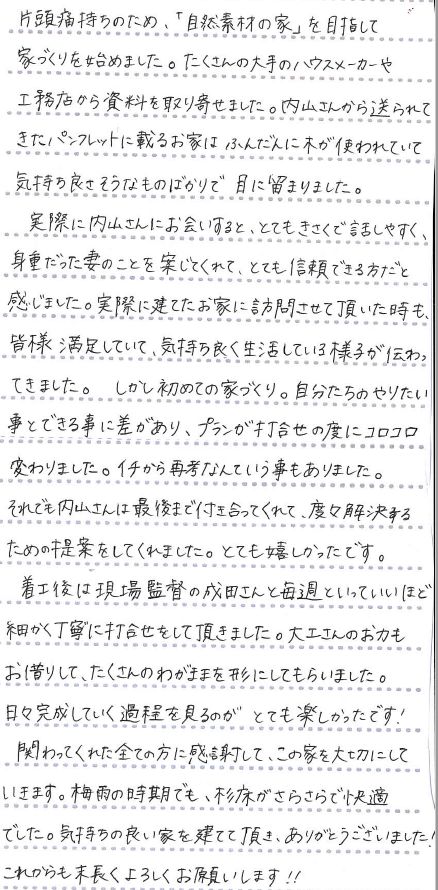 片頭痛持ちのため、「自然素材の家」を目指して
家づくりを始めました。たくさんの大手のハウスメーカーや
工務店から資料を取り寄せました。内山さんから送られて
きたパンフレットに載るお家は ふんだんに木が使われていて
気持ち良さそうなものばかりで 目に留まりました。
実際に内山さんにお会いすると、とてもきさくで話しやすく、
身重だった妻のことを案じてくれて、とても信頼できる方だと
感じました。実際に建てたお家に訪問させて頂いた時も、
皆様 満足していて、気持ち良く生活している様子が伝わっ
てきました。 しかし初めての家づくり。自分たちのやりたい
事とできる事に差があり、プランが打合せの度にコロコロ
変わりました。イチから再考なんていう事もありました。
それでも内山さんは最後まで付き合ってくれて、度々解決する
ための提案をしてくれました。とても嬉しかったです。
着工後は現場監督の成田さんと毎週といっていいほど
細かく丁寧に打合せをして頂きました。大工さんのお力も
お借りして、たくさんのわがままを形にしてもらいました。
日々完成していく過程を見るのが とても楽しかったです!
関わってくれた全ての方に感謝して、この家を大切にして
いきます。梅雨の時期でも、杉床がさらさらで快適
でした。気持ちの良い家を建てて頂き、ありがとうございました!
これからも末長くよろしくお願いします!!